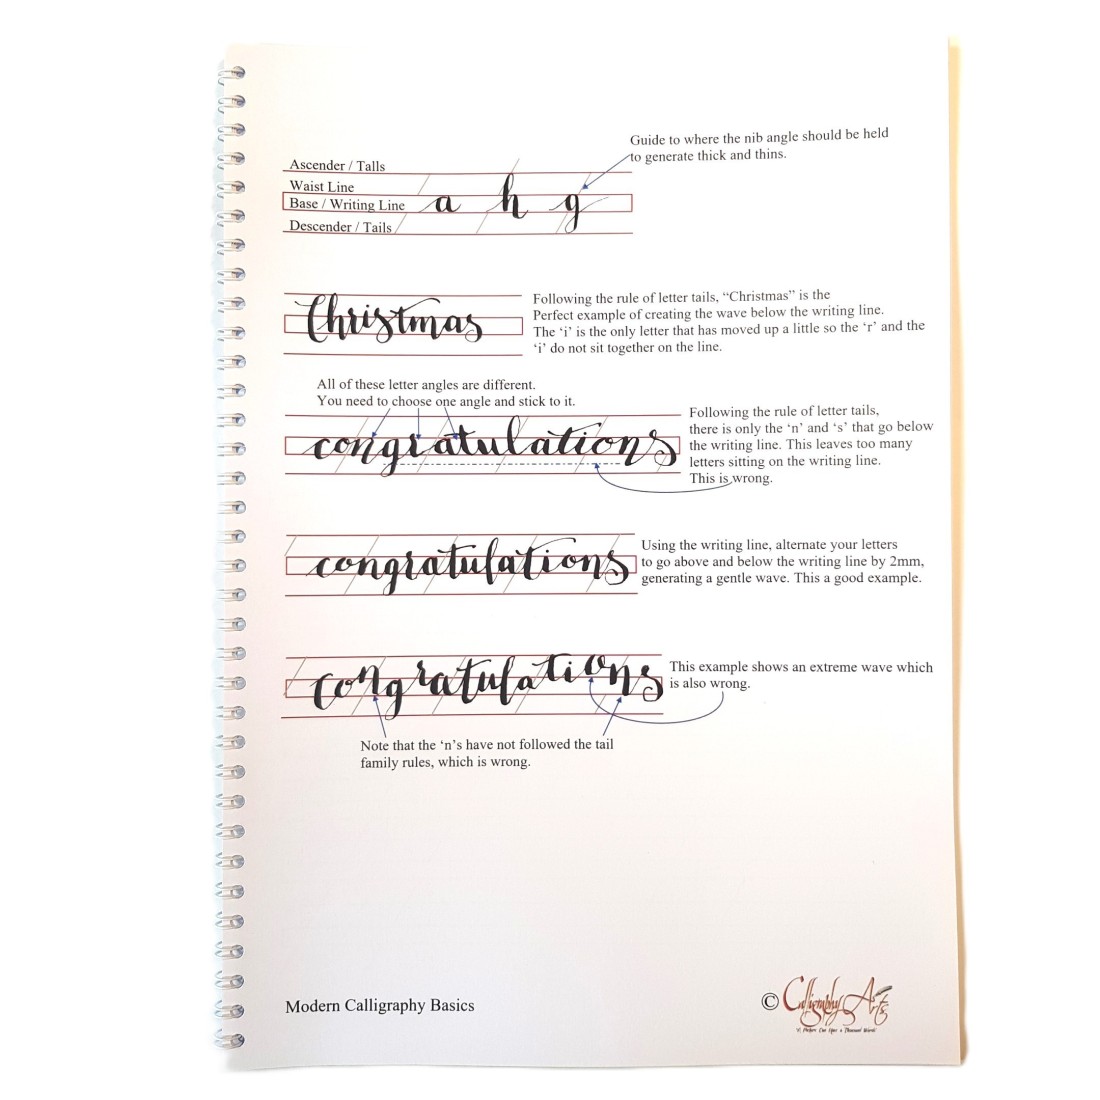 Guide to where the nib angle should be held
to generate thick and thins.
Ascender / Talls
Waist Line
Base / Writing Line
Descender / Tails
a h g
Christmas
Following the rule of letter tails, “Christmas” is the
Perfect example of creating the wave below the writing line.
The ‘i’ is the only letter that has moved up a little so the ‘r’ and the
‘i’ do not sit together on the line.
All of these letter angles are different.
You need to choose one angle and stick to it.
congratulations
Following the rule of letter tails,
there is only the ‘n’ and ‘s’ that go below
the writing line. This leaves too many
letters sitting on the writing line.
This is wrong.
congratulations
Using the writing line, alternate your letters
to go above and below the writing line by 2mm,
generating a gentle wave. This a good example.
congratulations
This example shows an extreme wave which
is also wrong.
Note that the ‘n’s have not followed the tail
family rules, which is wrong.
Modern Calligraphy Basics
© Calligraphy Arts